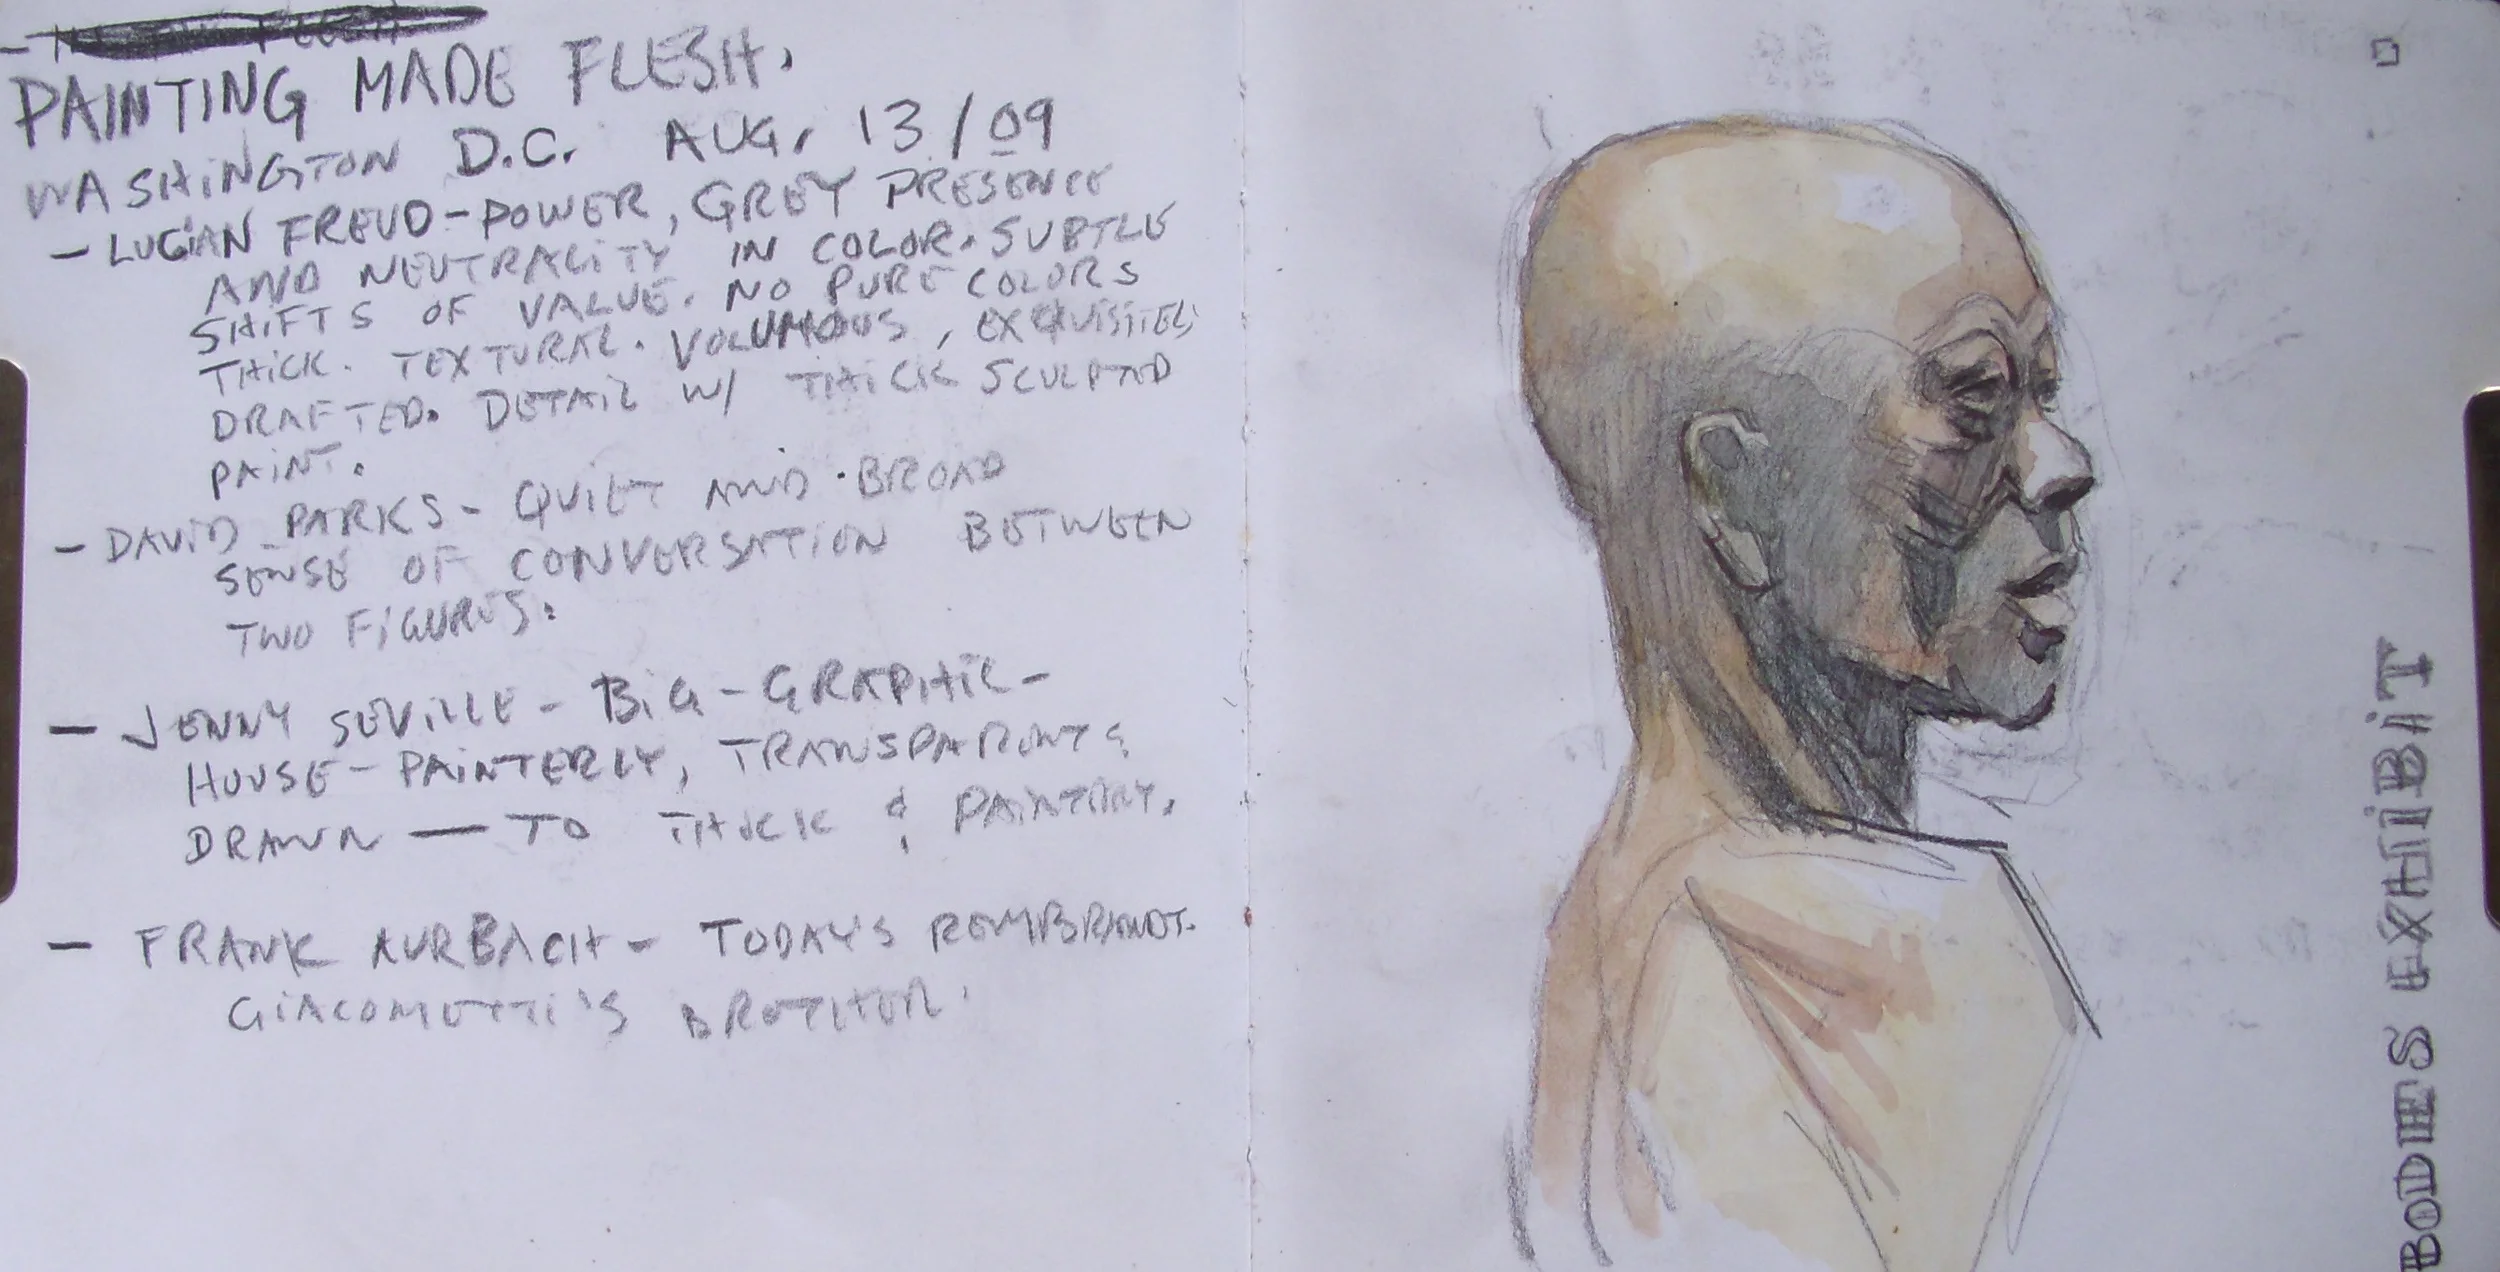 PAINTING MADE FLESH.
WASHINGTON D.C. AUG. 13/09
- LUCIAN FREUD - POWER, GREY PRESENCE
AND NEUTRALITY IN COLOR. SUBTLE
SHIFTS OF VALUE. NO PURE COLORS
THICK. TEXTURAL. VOLUMOUS, EXQUISITELY
DRAFTED. DETAIL W/ THICK SCULPTED
PAINT.
- DAVID PARKS - QUIET AND BROAD
SENSE OF CONVERSATION BETWEEN
TWO FIGURES.
- JENNY SEVILLE - BIG - GRAPHIC -
HOUSE - PAINTERLY, TRANSPARENT &
DRAWN — TO THICK & PAINTERY.
- FRANK AURBACH - TODAY'S REMBRANDT.
GIACOMETTI'S BROTHER.
BODIES EXHIBIT